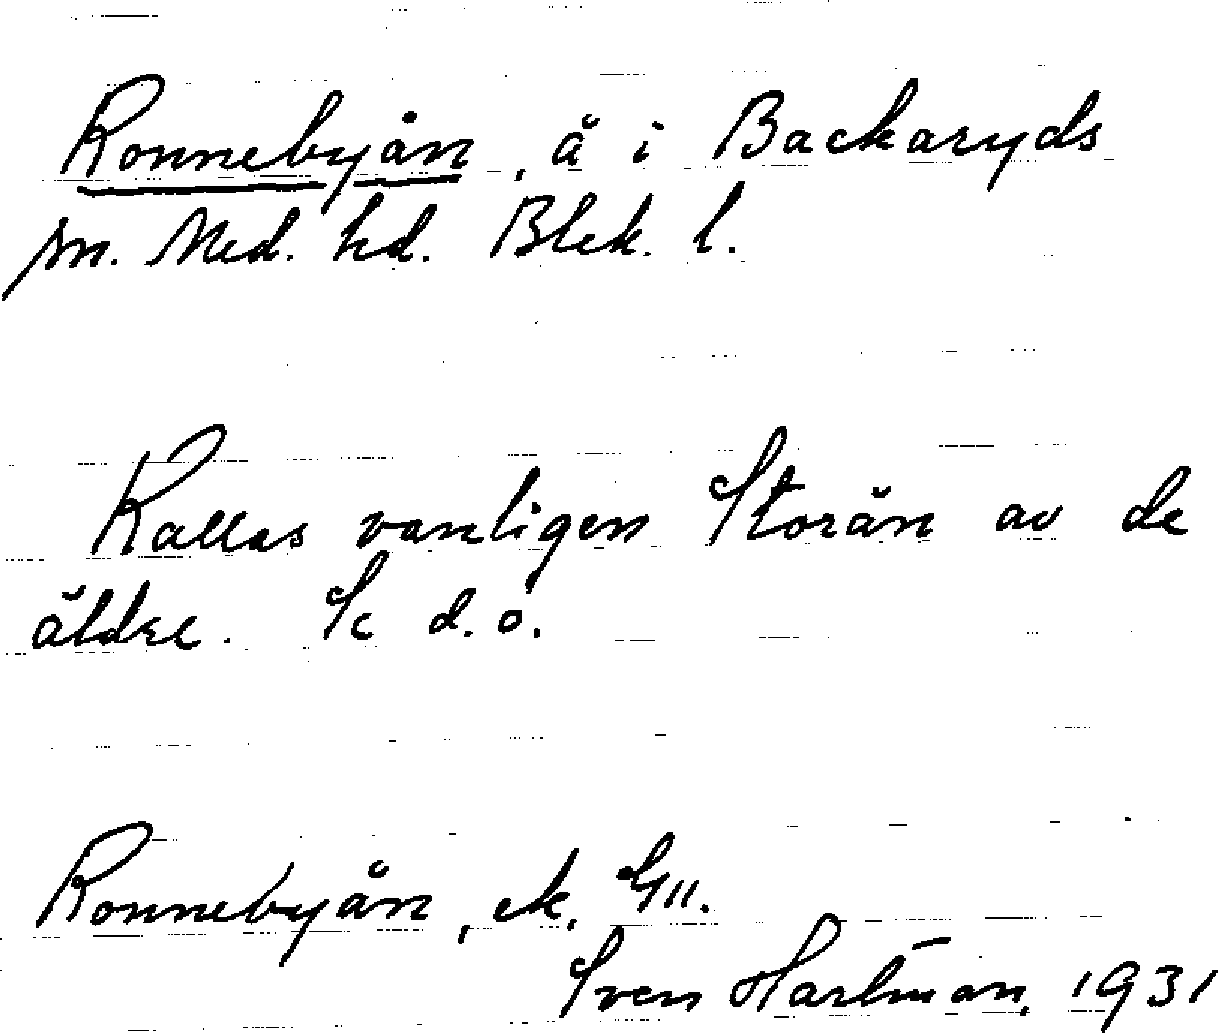 Ronnebyån, å i Backaryds
sn. Med. hd. Blek. l.
Kallas vanligen Storån av de
äldre. Se d.o.
Ronnebyån, ek. S11.
Sven Hartman, 1931